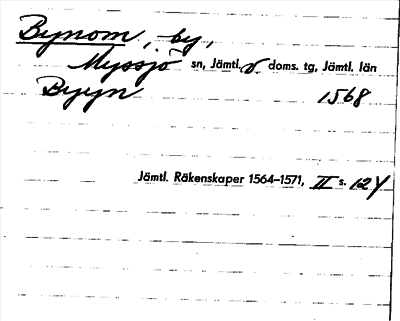 Bynom, by,
Myssjö sn, Jämtl. v. doms. tg, Jämtl. län
Byyn 1568
Jämtl. Räkenskaper 1564–1571, II s. 124